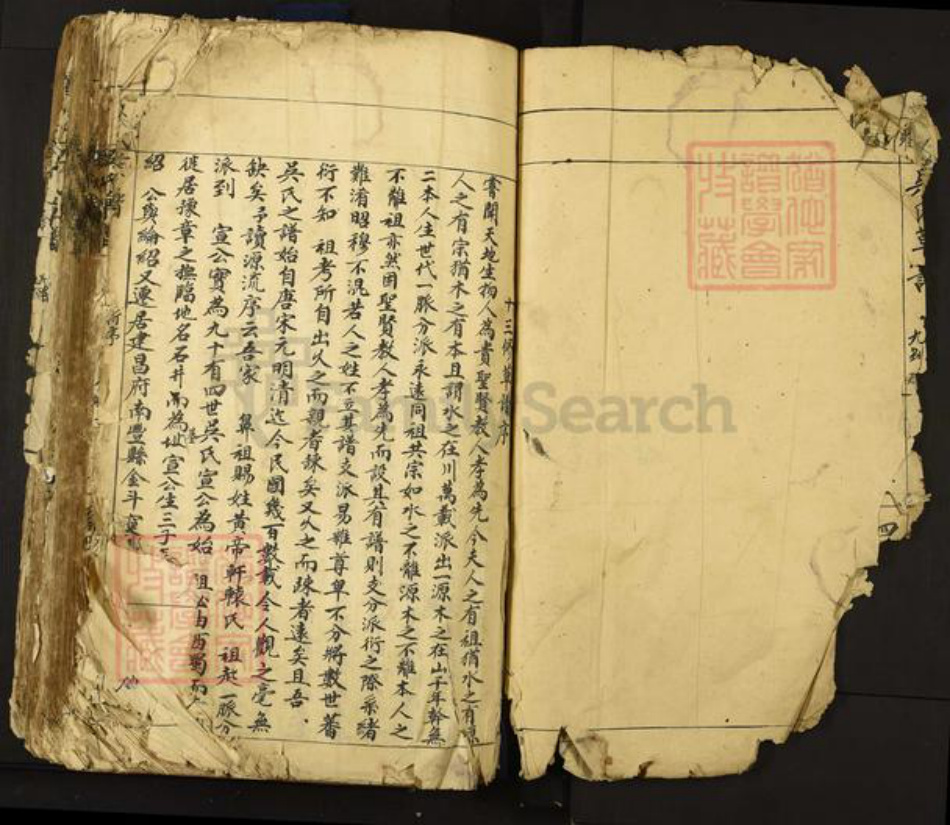 十三修草譜序
嘗聞天地生物人為貴聖賢教人孝為先今夫人之有祖猶水之有源
人之有宗猶木之有本且謂水之在川萬載派出一源木之在山千年幹無
二本人生世代一脈分派永遠同祖共宗如水之不離源木之不離本人之
不離祖亦然固聖賢教人孝為先而設其有譜則支分派衍之際系緒
難淆昭穆不混若人之姓不立其譜支派易離尊卑不分將數世蕃
衍不知 祖考所自出久之而親者踈矣又久之而踈者遠矣且吾
吳氏之譜始自唐宋元明清迄今民國幾百數載今人觀之毫無
缺矣予讀源流序云吾家 鼻祖賜姓黃帝軒轅氏 祖起一脈分
派到 宣公實為九十有四世吳氏宣公為始 祖公由西蜀而
徙居豫章之撫臨地名石井而為址宣公生三子
紹 公與綸紹又遷居建昌府南豐縣金斗
九
四
FamilySearch